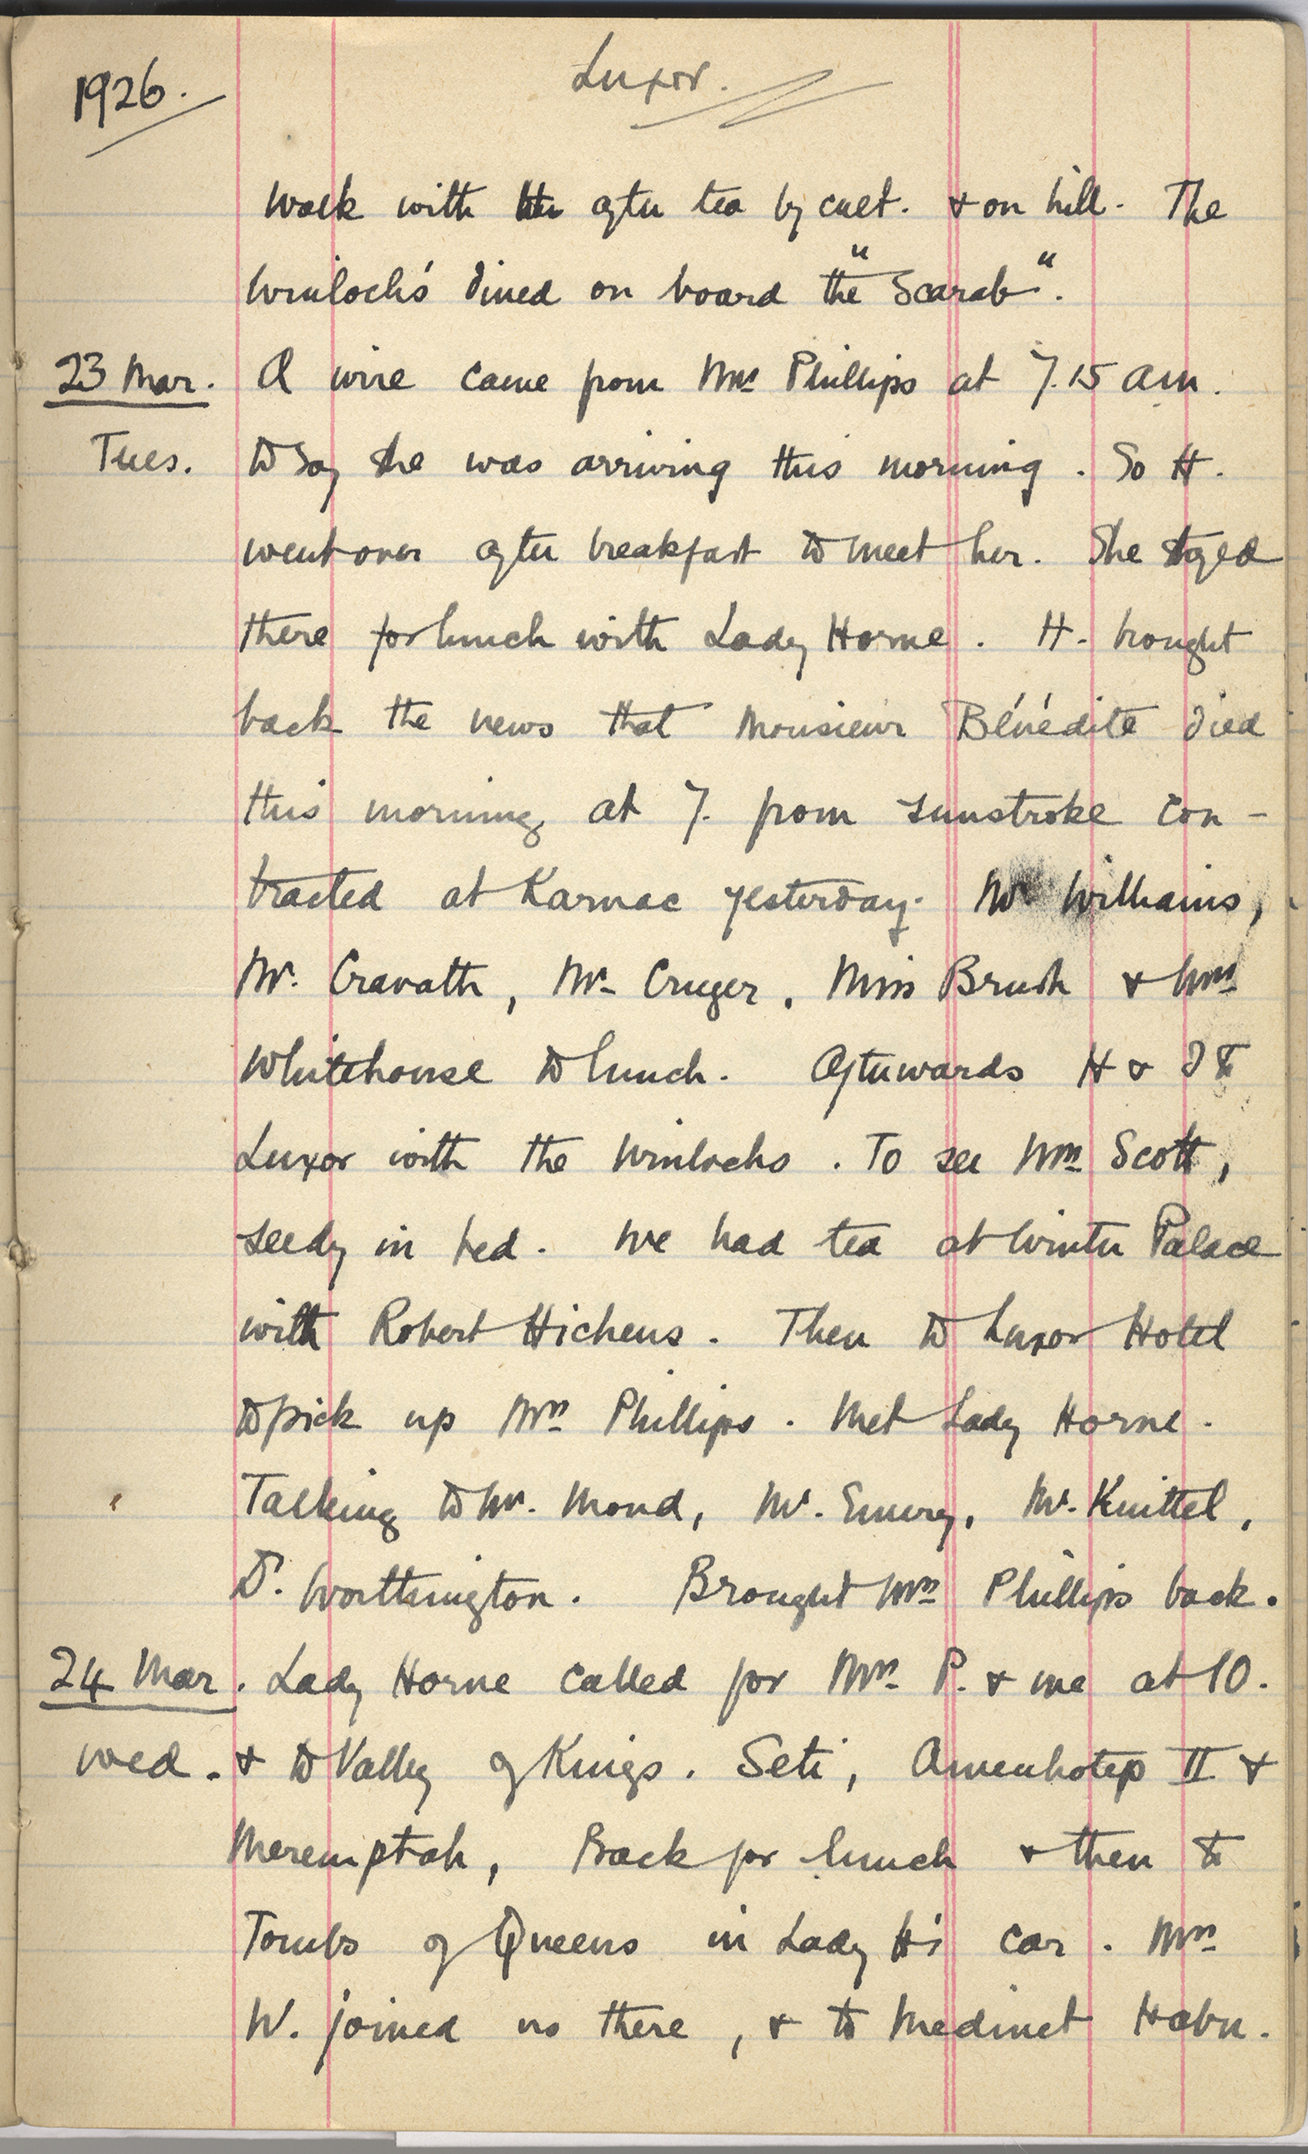 1926. Luxor.
walk with H. after tea by cult. & on hill. The
Winlock's dined on board the "Scarab".
23 Mar. A wire came from Mrs Phillips at 7.15 am.
Tues. to say she was arriving this morning. So H.
went over after breakfast to meet her. She stayed
there for lunch with Lady Horne. H. brought
back the news that Monsieur Bénédite died
this morning at 7. from sunstroke con-
tracted at Karnac yesterday. Mr Williams,
Mr. Cravath, Mr Cruger, Miss Brush & Mrs
Whitehouse to lunch. Afterwards H & I to
Luxor with the Winlocks. To see Mrs Scott,
seedy in bed. We had tea at Winter Palace
with Robert Hichens. Then to Luxor Hotel
to pick up Mrs Phillips. Met Lady Horne.
Talking to Mr. Mond, Mr. Emery, Mr. Knittel,
Dr. Worthington. Brought Mrs Phillips back.
24 Mar. Lady Horne called for Mrs P. & me at 10.
Wed. & to Valley of Kings. Seti, Amenhotep II &
Meremptah, Back for lunch & then to
Tombs of Queens in Lady H's car. Mrs
W. joined us there, & to Medinet Habu.